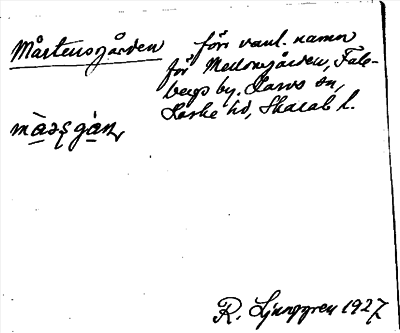 Mårtensgården förr vanl. namn
för Mellomgården, Fale-
bergs by. Larvs sn,
Laske hd, Skarab. l.
R. Ljunggren 1927